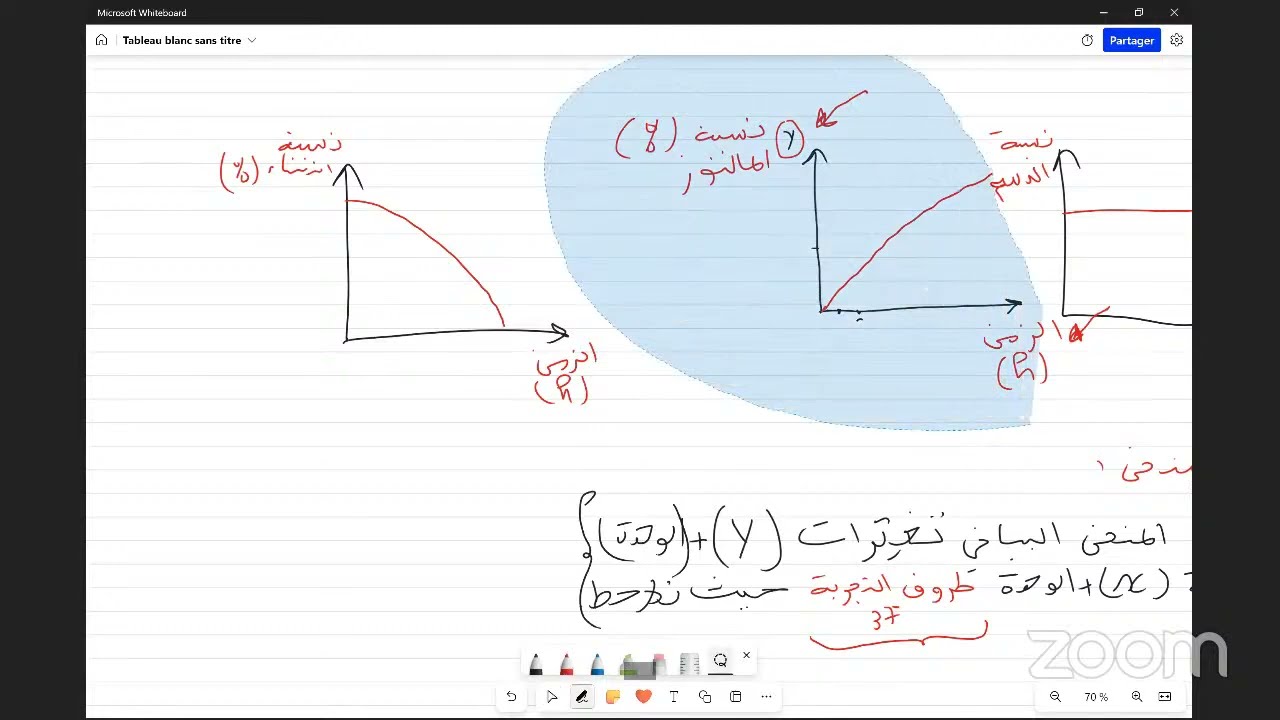 Microsoft Whiteboard
Tableau blanc sans titre
Partager
نسبة
النشاء (%)
الزمن
(h)
نسبة (%) (y)
المالتوز
الزمن
(h)
نسبة
الدسم
المنحنى البياني تغيرات (y)+(الوحدة)
(x)+الوحدة ظروف التجربة حيث نلاحظ
37
70 %
zoom